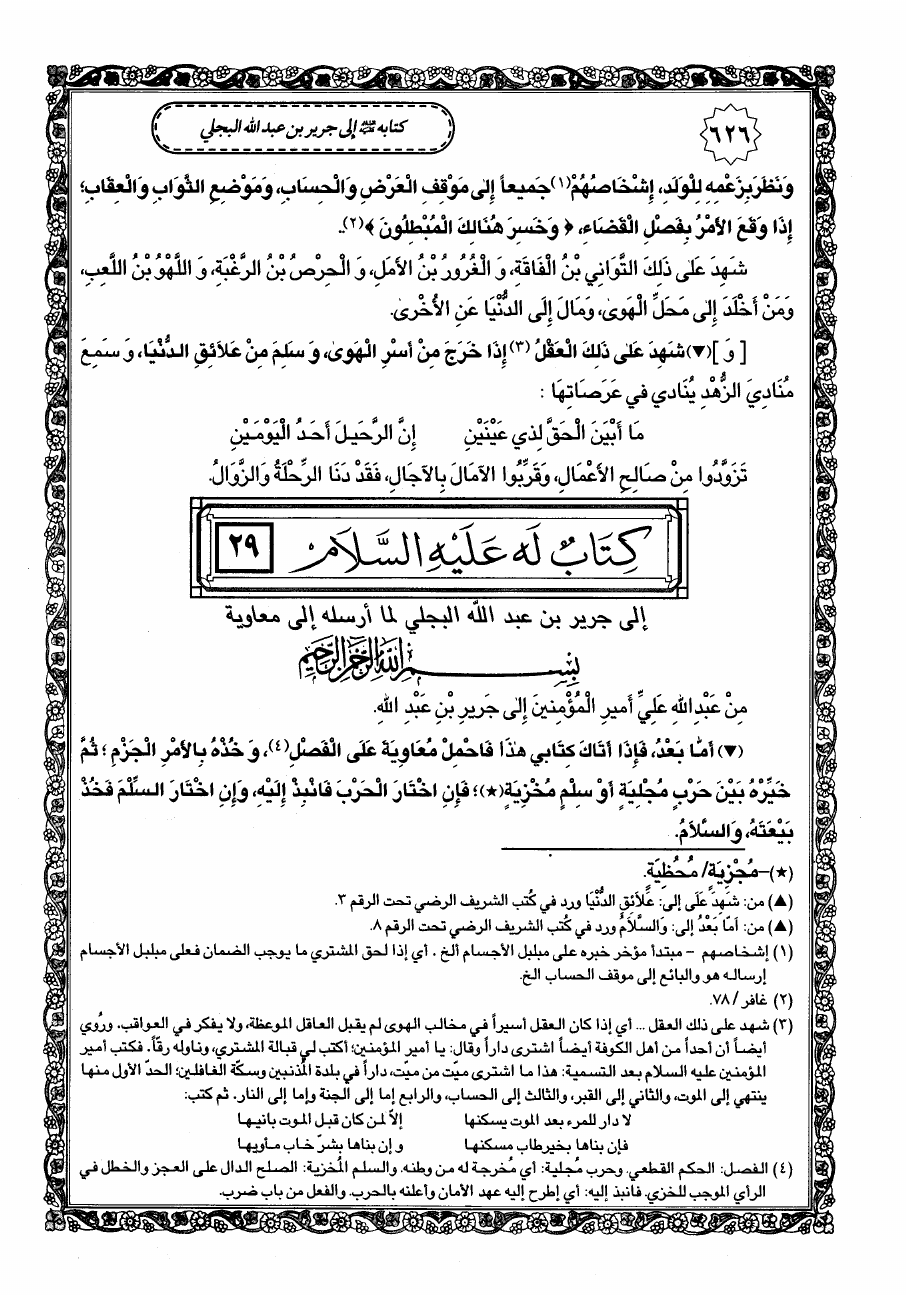 ٦٢٦
كتابه ﷺ إلى جرير بن عبد الله البجلي
وَنَظَرَ بِزَعْمِهِ لِلْوَلَدِ، إِشْخَاصُهُمْ(١) جَميعاً إِلى مَوْقِفِ الْعَرْضِ وَالْحِسَابِ، وَمَوْضِعِ الثَّوَابِ وَالْعِقَابِ؛
إِذَا وَقَعَ الأَمْرُ بِفَصْلِ الْقَضَاءِ، ﴿ وَخَسِرَ هُنَالِكَ الْمُبْطِلُونَ ﴾(٢).
شَهِدَ عَلى ذَلِكَ التَّوَاني بْنُ الْفَاقَةِ، وَ الْغُرُورُ بْنُ الأَمَلِ، وَ الْحِرْصُ بْنُ الرَّغْبَةِ، وَ اللَّهْوُ بْنُ اللَّعِبِ،
وَمَنْ أَخْلَدَ إِلى مَحَلِّ الْهَوى، وَمَالَ إِلَى الدُّنْيَا عَنِ الأُخْرى.
[ وَ ](▼) شَهِدَ عَلى ذَلِكَ الْعَقْلُ (٣) إِذَا خَرَجَ مِنْ أَسْرِ الْهَوى، وَ سَلِمَ مِنْ عَلاَئِقِ الدُّنْيَا، وَ سَمِعَ
مُنَادِيَ الزُّهْدِ يُنَادي في عَرَصَاتِهَا :
مَا أَبْيَنَ الْحَقَّ لِذي عَيْنَيْنِ إِنَّ الرَّحيلَ أَحَدُ الْيَوْمَيْنِ
تَزَوَّدُوا مِنْ صَالِحِ الأَعْمَالِ، وَقَرِّبُوا الآمَالَ بِالآجَالِ، فَقَدْ دَنَا الرِّحْلَةُ وَالزَّوَالُ.
كِتَابٌ لَه عَلَيْهِ السَّلاَم ٢٩
إلى جرير بن عبد الله البجلي لما أرسله إلى معاوية
بِسْمِ اللهِ الرَّحْمنِ الرَّحِيمِ
مِنْ عَبْدِ اللهِ عَلِيٍّ أَميرِ الْمُؤْمِنينَ إِلى جَريرِ بْنِ عَبْدِ اللهِ.
(▼) أَمَّا بَعْدُ، فَإِذَا أَتَاكَ كِتَابي هذَا فَاحْمِلْ مُعَاوِيَةَ عَلَى الْفَصْلِ(٤)، وَ خُذْهُ بِالأَمْرِ الْجَزْمِ ؛ ثُمَّ
خَيِّرْهُ بَيْنَ حَرْبٍ مُجْلِيَةٍ أَوْ سِلْمٍ مُخْزِيَةٍ(★)؛ فَإِنِ اخْتَارَ الْحَرْبَ فَانْبِذْ إِلَيْهِ، وَإِنِ اخْتَارَ السِّلْمَ فَخُذْ
بَيْعَتَهُ، وَالسَّلاَمُ.
(★)–مُجْزِيَةٍ/ مُحْظِيَةٍ.
(▲) من: شَهِدَ عَلَى إلى: عَلاَئِقِ الدُّنْيَا ورد في كتب الشريف الرضي تحت الرقم ٣.
(▲) من: اَمّا بَعْدُ إلى: وَالسَّلاَمُ ورد في كُتب الشريف الرضي تحت الرقم ٨.
(١) إشخاصهم – مبتدأ مؤخر خبره على مبلبل الأجسام ألخ . أي إذا لحق المشتري ما يوجب الضمان فعلى مبلبل الأجسام
إرساله هو والبائع إلى موقف الحساب الخ.
(٢) غافر / ٧٨.
(٣) شهد على ذلك العقل ... أي إذا كان العقل أسيراً في مخالب الهوى لم يقبل العاقل الموعظة، ولا يفكر في العواقب. ورُوي
أيضاً أن أحداً من أهل الكوفة أيضاً اشترى داراً وقال: يا أمير المؤمنين؛ أكتب لي قبالة المشتري، وناوله رقّاً. فكتب أمير
المؤمنين عليه السلام بعد التسمية: هذا ما اشترى ميّت من ميّت، داراً في بلدة المذنبين وسكّة الغافلين؛ الحدّ الأول منها
ينتهي إلى الموت، والثاني إلى القبر، والثالث إلى الحساب، والرابع إما إلى الجنة وإما إلى النار. ثم كتب:
لا دار للمرء بعد الموت يسكنها إلاّ لمن كان قبل الموت بانيها
فإن بناها بخير طاب مسكنها و إن بناها بشرّ خاب مأويها
(٤) الفصل: الحكم القطعي. وحرب مُجلية: أي مُخرجة له من وطنه. والسلم المُخزية: الصلح الدال على العجز والخطل في
الرأي الموجب للخزي. فانبذ إليه: أي إطرح إليه عهد الأمان وأعلنه بالحرب. والفعل من باب ضرب.